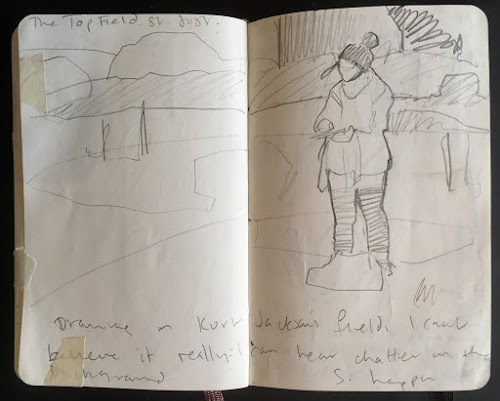 The Top Field. St. Just.
Drawing in Kurt Jackson's field. I cant
believe it really. I can hear chatter in the
background. So happy